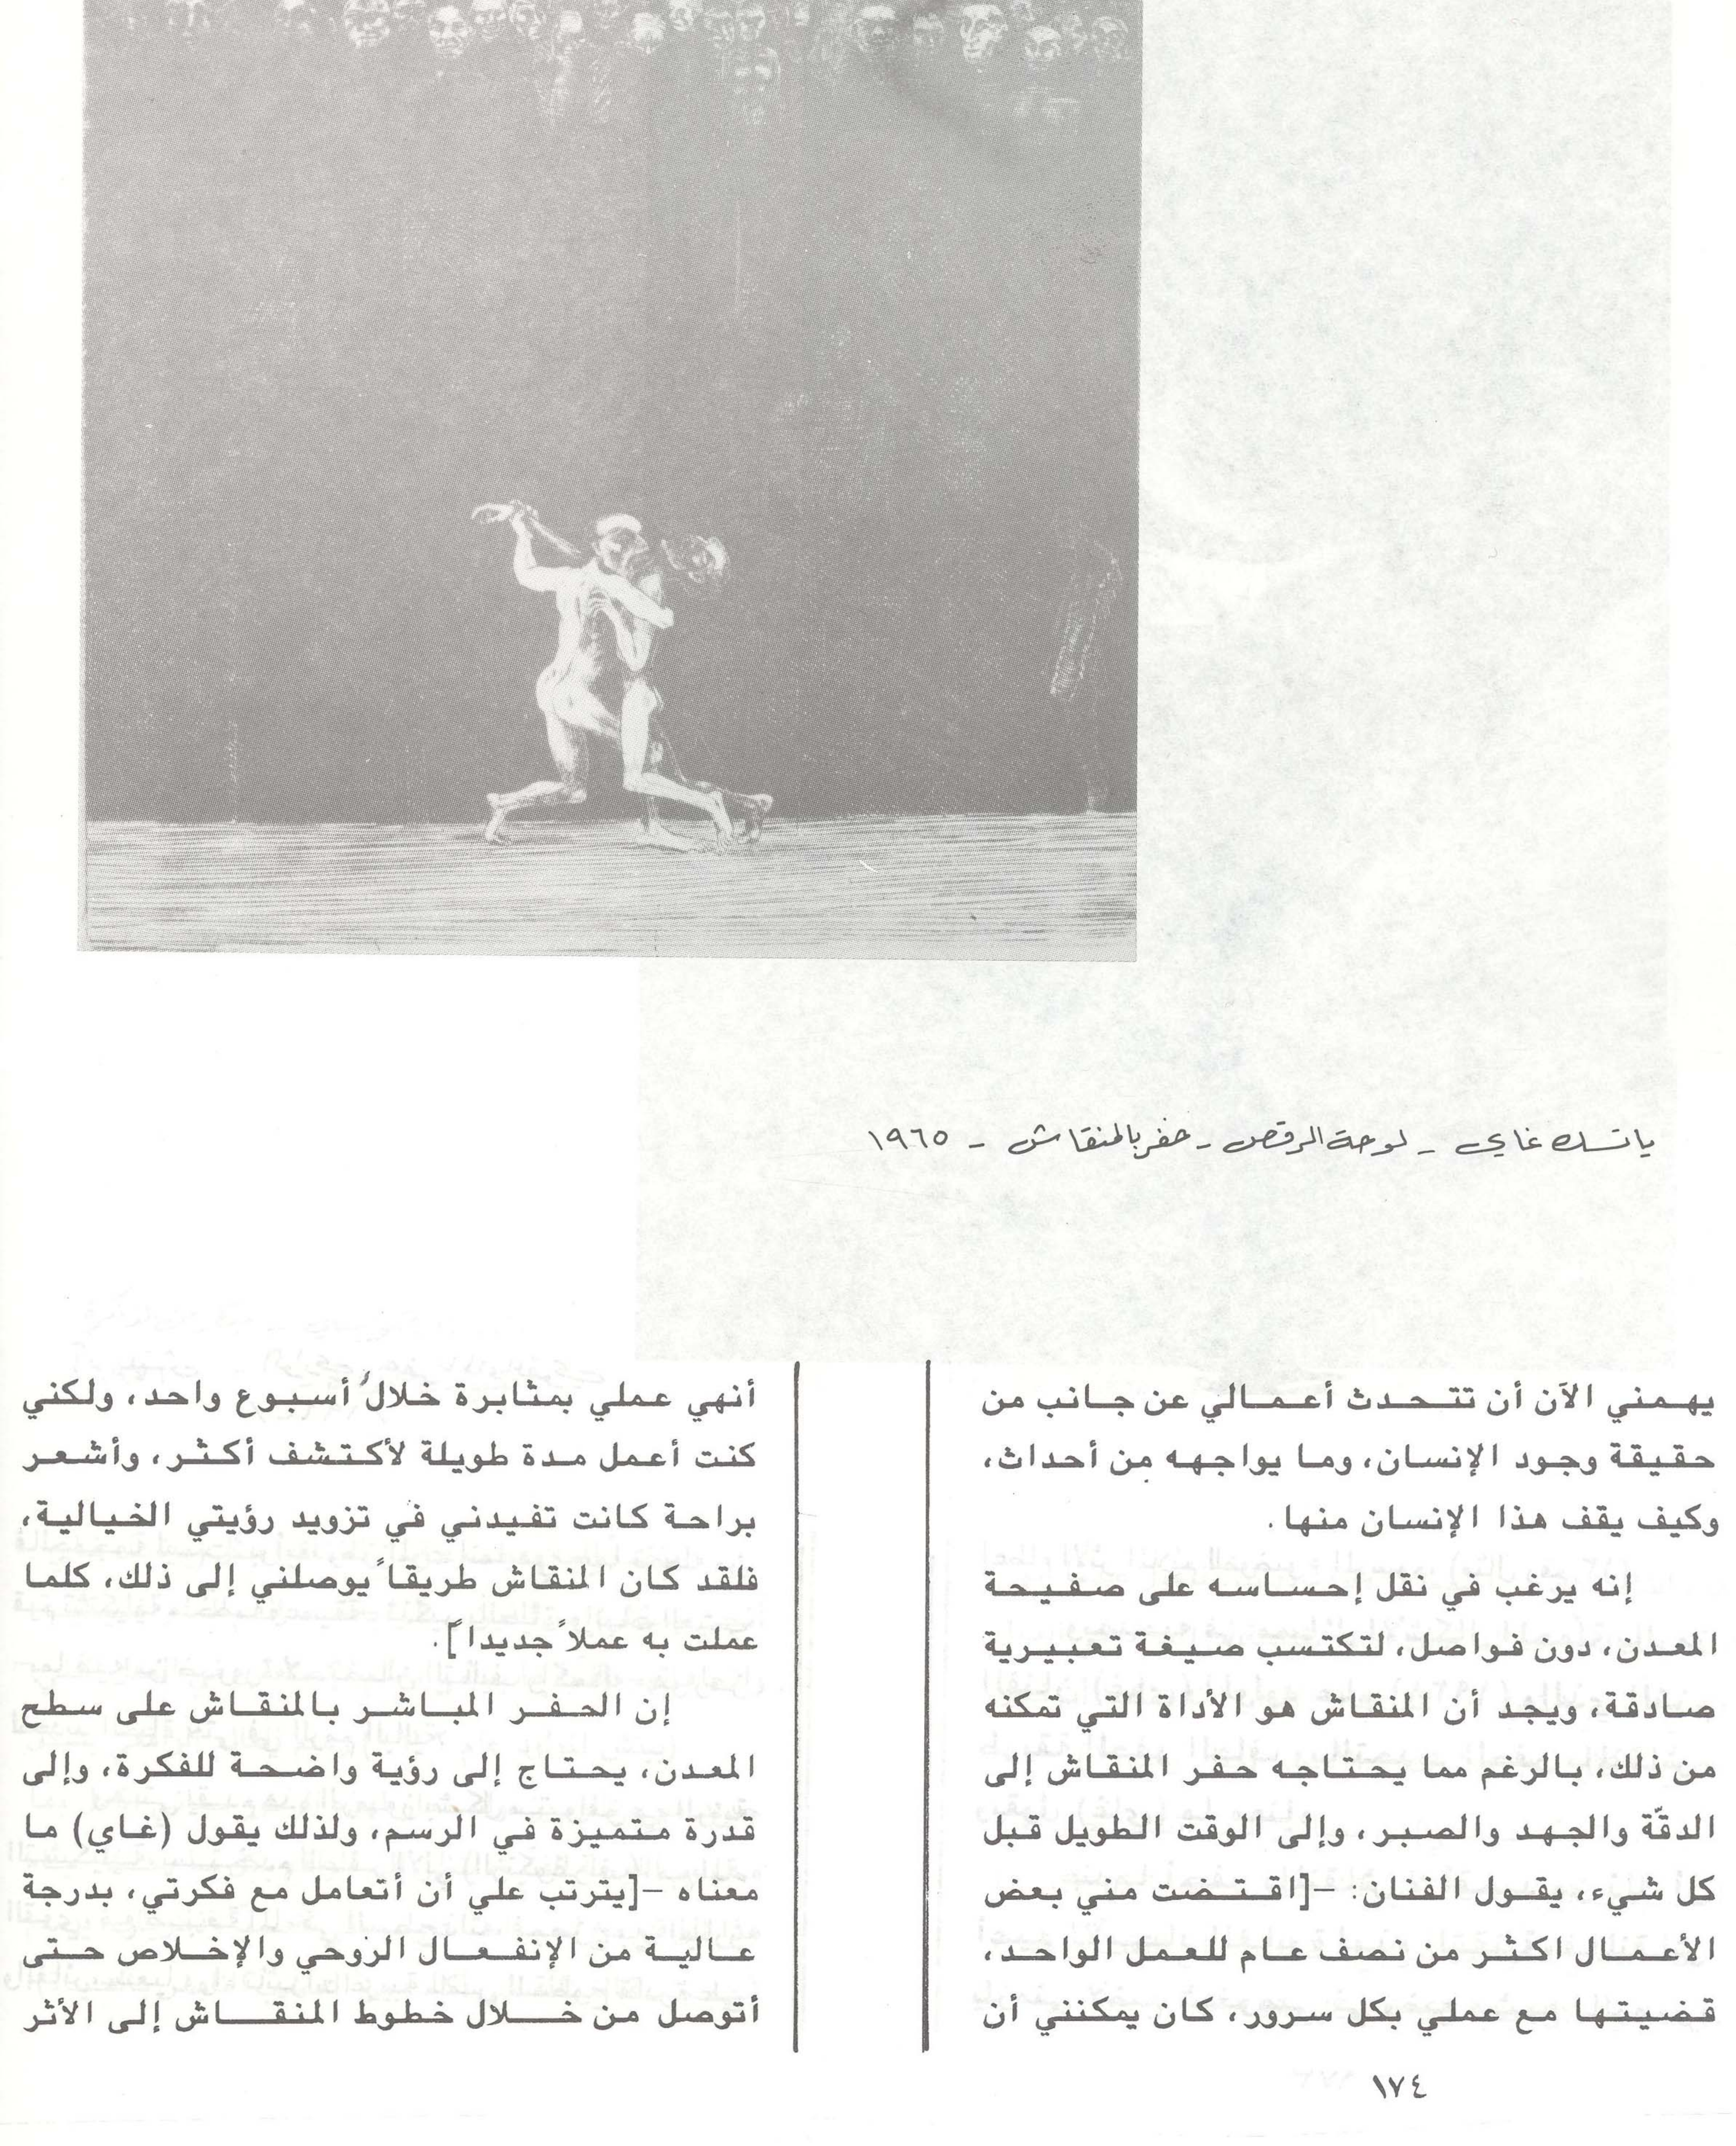 ياتسك غاي - لوحة الرقص - حفر بالمنقاش - ١٩٦٥
يهمني الآن أن تتحدث أعمالي عن جانب من
حقيقة وجود الإنسان، وما يواجهه من أحداث،
وكيف يقف هذا الإنسان منها.
إنه يرغب في نقل إحساسه على صفيحة
المعدن، دون فواصل، لتكتسب صيغة تعبيرية
صادقة، ويجد أن المنقاش هو الأداة التي تمكنه
من ذلك، بالرغم مما يحتاجه حفر المنقاش إلى
الدقّة والجهد والصبر، وإلى الوقت الطويل قبل
كل شيء، يقول الفنان: -[اقتضت مني بعض
الأعمال اكثر من نصف عام للعمل الواحد،
قضيتها مع عملي بكل سرور، كان يمكنني أن
أنهي عملي بمثابرة خلال أسبوع واحد، ولكني
كنت أعمل مدة طويلة لأكتشف أكثر، وأشعر
براحة كانت تفيدني في تزويد رؤيتي الخيالية،
فلقد كان المنقاش طريقاً يوصلني إلى ذلك، كلما
عملت به عملاً جديداً].
إن الحفر المباشر بالمنقاش على سطح
المعدن، يحتاج إلى رؤية واضحة للفكرة، وإلى
قدرة متميزة في الرسم، ولذلك يقول (غاي) ما
معناه -[يترتب علي أن أتعامل مع فكرتي، بدرجة
عالية من الإنفعال الروحي والإخلاص حتى
أتوصل من خلال خطوط المنقاش إلى الأثر
١٧٤